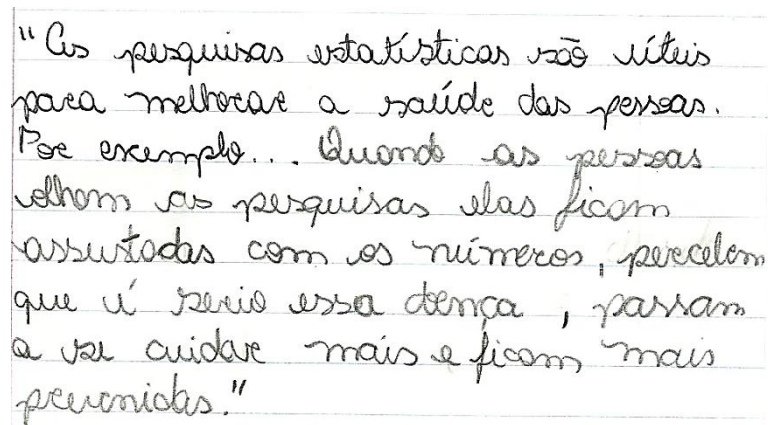 "As pesquisas estatísticas são úteis
para melhorar a saúde das pessoas.
Por exemplo... Quando as pessoas
olham as pesquisas elas ficam
assustadas com os números, percebem
que é serio essa doença, passam
a se cuidar mais e ficam mais
prevenidas."